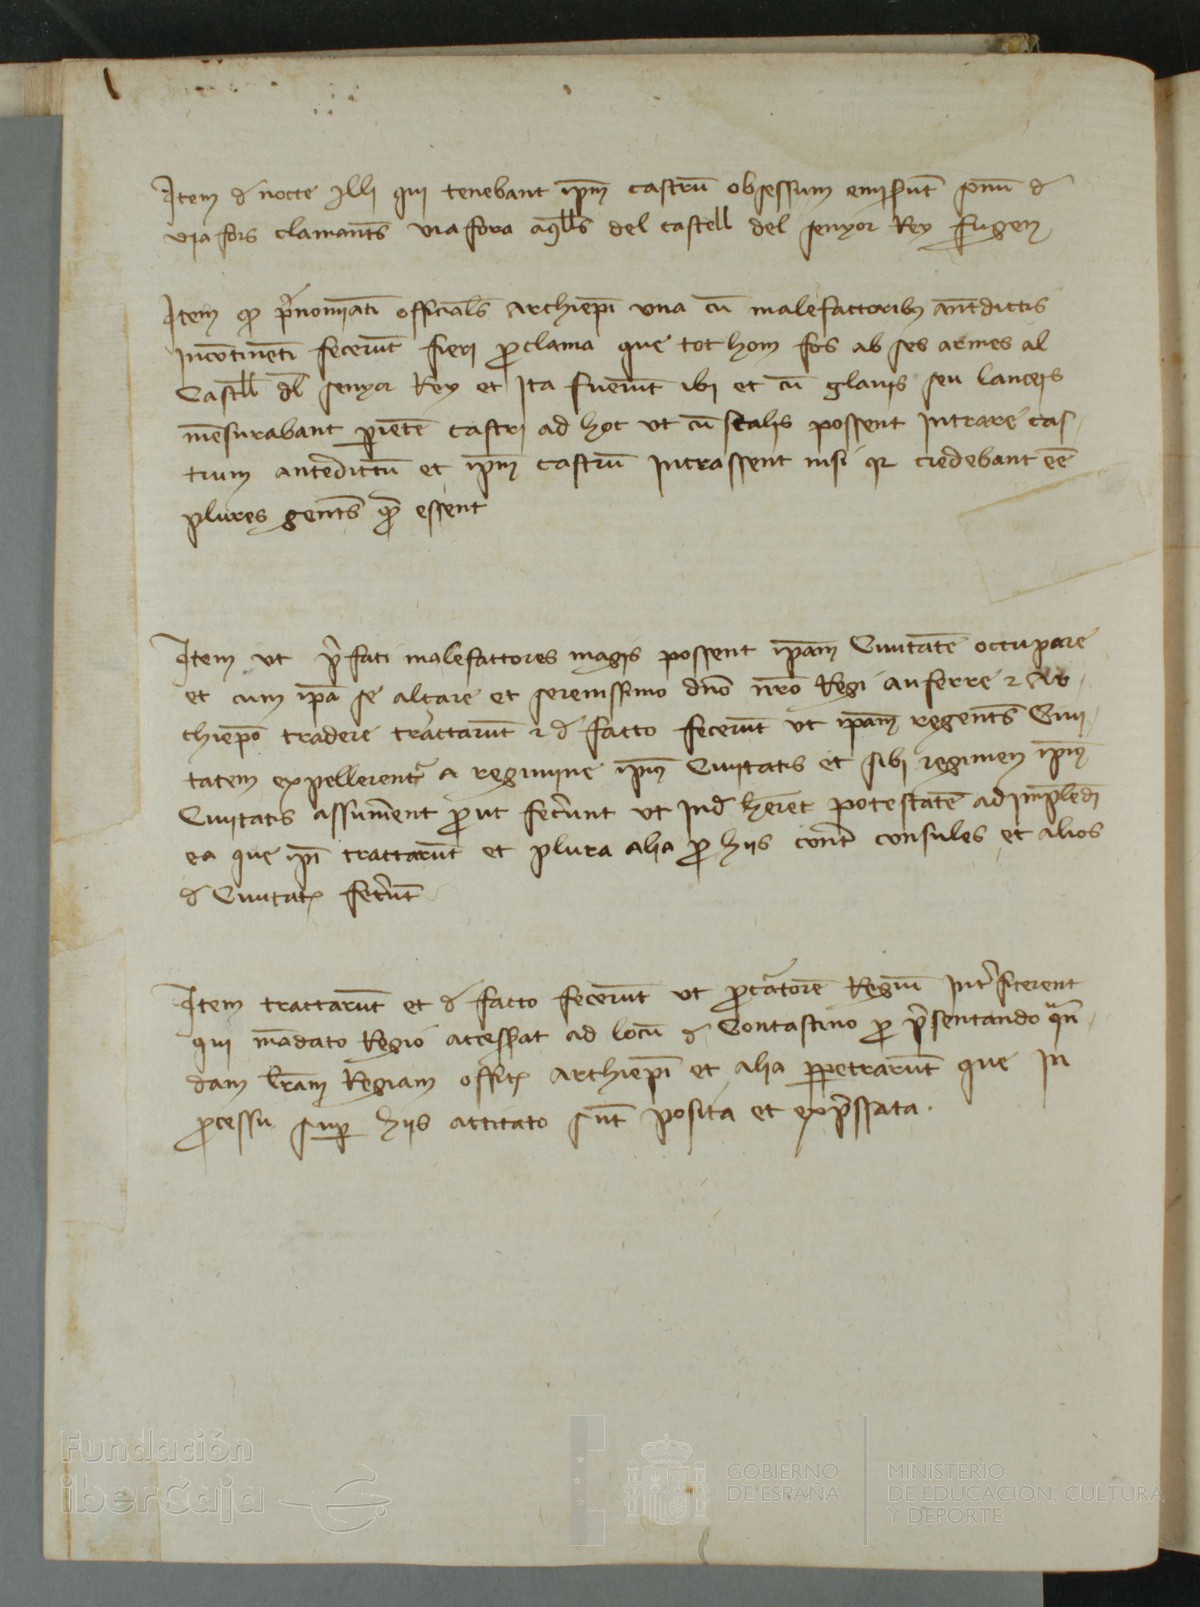 Item đ nocte Illi qui tenebant ip̄m castrū obsessum emiserūt sonū đ
via fors clamant̄s via fora aq̄lls del castell del senyor Rey fugen
Item q̄ p̄nomīati official̄s Archiep̄i vna cū malefactorib; ant̄dictis
Incōtinēti fecerūt fieri p̄clama que tot hom fos ab ses armes al
Castll dl̄ senyor Rey et Ita fuerūt ibi et cū glauis seu lanceis
mēsurabant p̄ietē castri ad hoc vt cū scalis possent Intrare cas-
trum antedictū et ip̄m castrū Intrassent nisi qr credebant eē
plures gent̄s q̄ essent
Item vt p̄fati malefactores magis possent ip̄am Ciuitatē occupare
et cum ip̄a se alçare et serenissimo dn̄o nr̄o Regi auferre et Ar-
chiep̄o tradere tractarūt et đ facto fecerūt vt ip̄am regent̄s Ciui-
tatem expellerent̄ a regimine ip̄iu Ciuitatis et sibi regimen ip̄iu
Ciuitatis assum̄ent p̄ut fec̄unt vt Ind̄ her̄et potestatē adimplēdi
ea que ip̄i tractarūt et plura alia p̄ hiis cont̄ consules et alios
đ Ciuitat; fec̄ūt
Item tractarūt et đ facto fecerūt vt p̄cat̄orē Regiū Int̄ficerent
qui mādato Regio accesserat ad locū đ Contastino p̄ p̄sentando quā-
dam lr̄am Regiam offic; Archiep̄i et alia p̄petrarūt que In
p̄cessu sup̄ hiis actitato sūt posita et exp̄ssata.
Fundación
iberCaja
GOBIERNO
DE ESPAÑA
MINISTERIO
DE EDUCACIÓN, CULTURA
Y DEPORTE